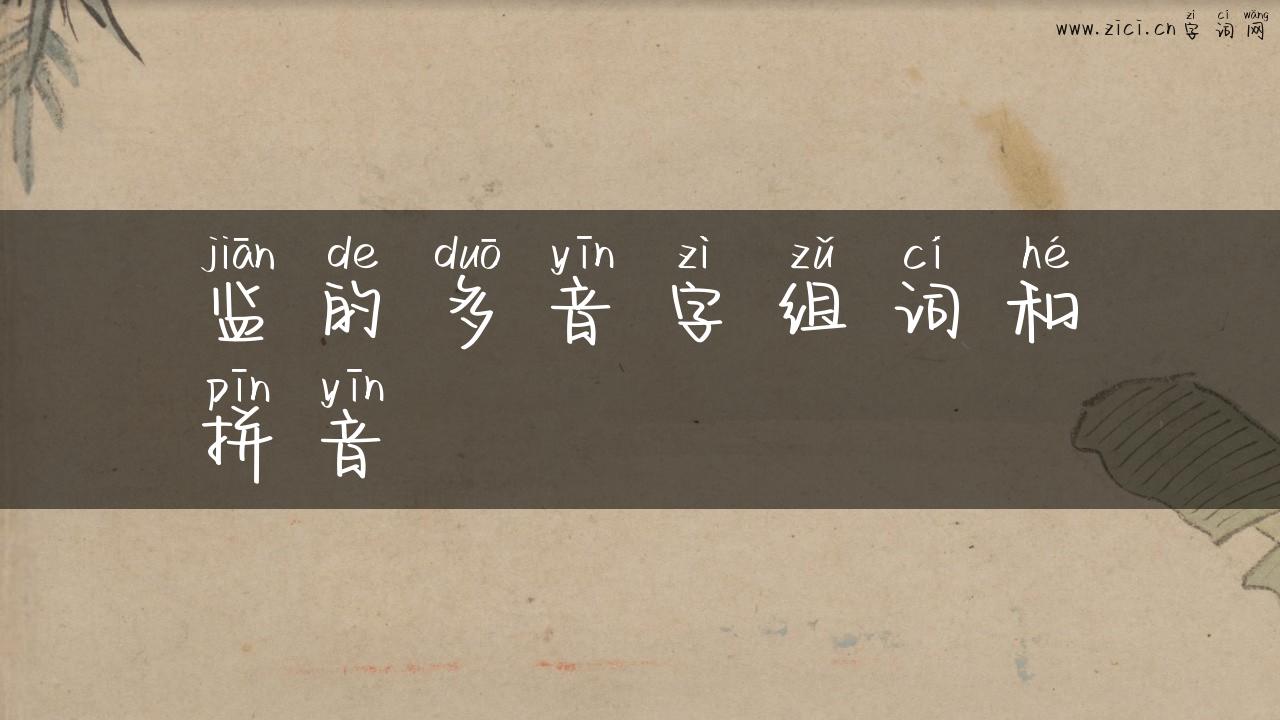 zì cí wǎng
www.zici.cn 字词网
jiān de duō yīn zì zǔ cí hé
监的多音字组词和
pīn yīn
拼音